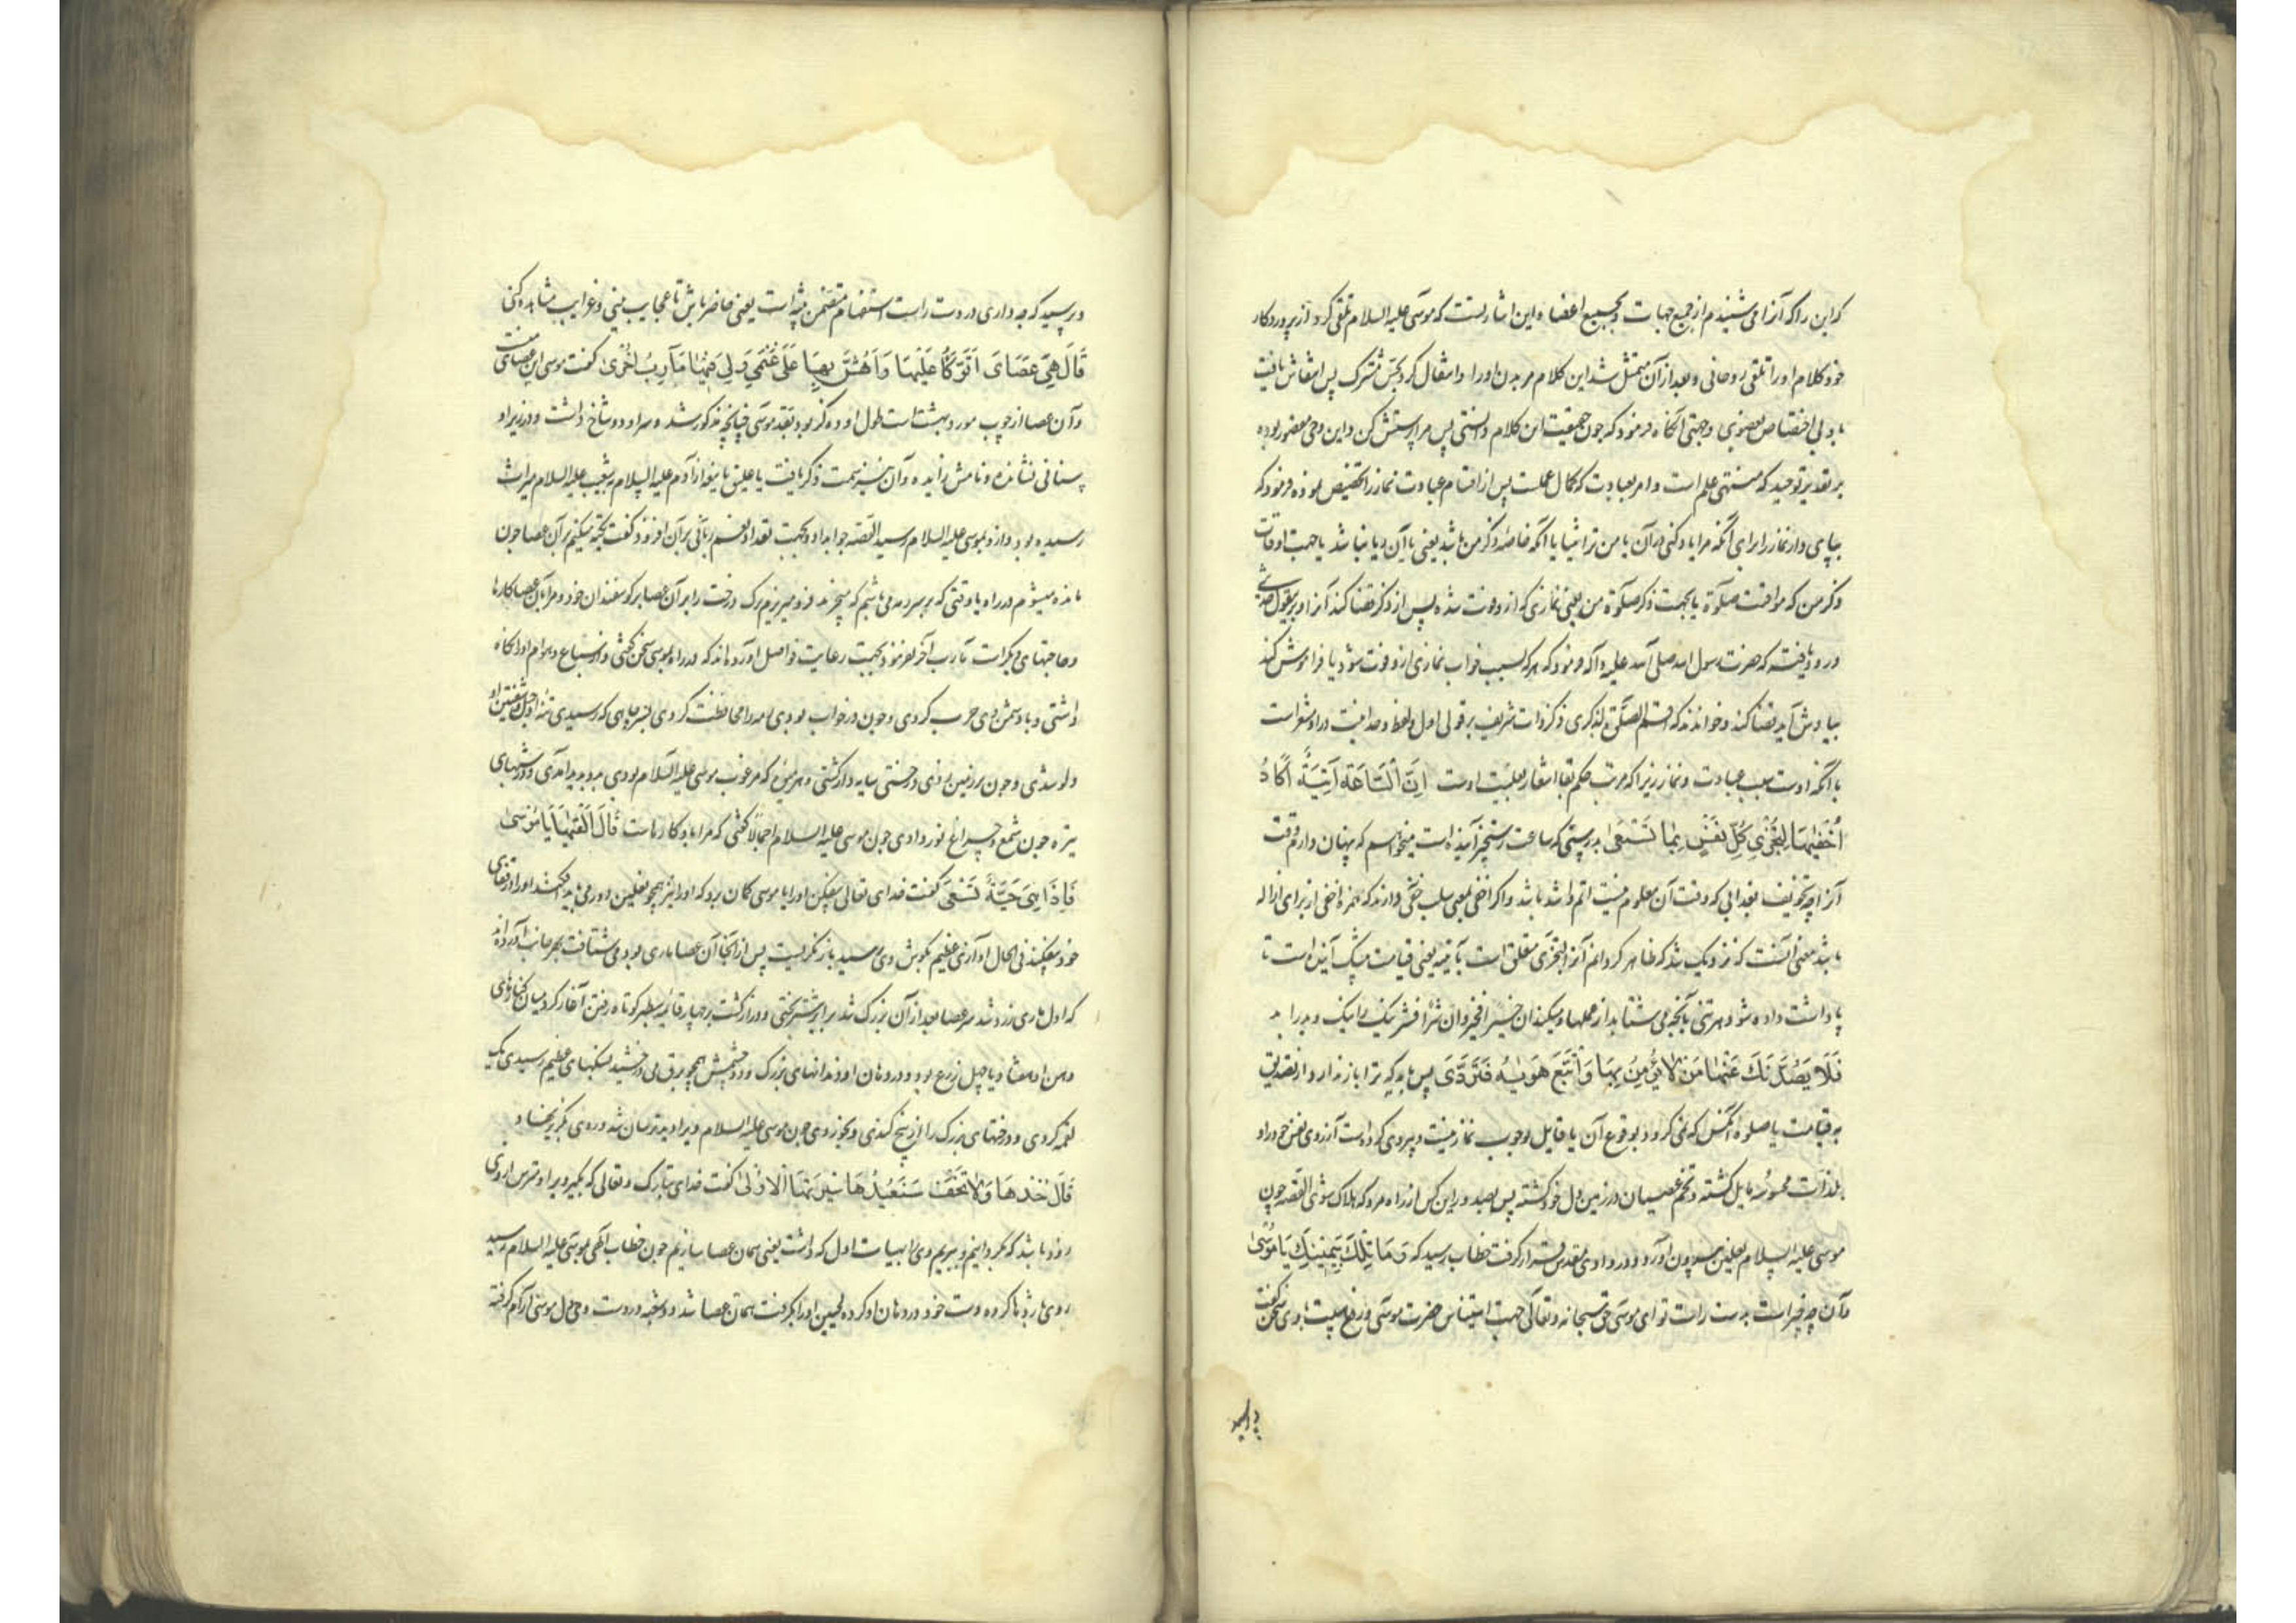 که این را که آنرا می شنیدم از جمیع جهات و بجمیع اعضا و این اشارتست که موسی علیه السلام تلقی کرد از پروردگار
خود کلام او را تلقی روحانی و بعد از آن متمثل شد این کلام مر بدن او را و انتقال کرد بحس مشترک پس انتقاش یافت
با و بی اختصاص بعضوی و جهتی آنگاه فرمود که چون حقیقت این کلام دانستی پس مرا پرستش کن و این وحی مقصور بوده
بر تقدیر توحید که منتهی علم است و امر بعبادت که کمال عملست پس از اقسام عبادت نماز را تخصیص نموده فرمود که
بپای دار نماز را برای آنکه مرا یاد کنی در آن یا من ترا بثنا یا آنکه خاصه ذکر من باشد یعنی با آن ریا نباشد یا جهت اوقات
ذکر من که مواقت صلوة یا بجهت ذکر صلوة من یعنی نمازی که از و فوت شده پس از ذکر قضا کند آنرا و برین قول حدیثی
ورود یافته که حضرت رسول الله صلی الله علیه و آله فرمود که هر که بسبب خواب نمازی ازو فوت شود یا فراموش کند
بیادش آید قضا کند و خواندند که اقم الصلوة لذکری ذکر ذات شریف بر قول اول و لفظ وحدانیت در او مشعر است
با آنکه اوست سبب عبادت و نماز زیرا که مرتب حکم بفا اشعار بعلیت اوست اِنَّ السَّاعَةَ اٰتِيَةٌ اَكَادُ
اُخْفِيْهَا لِتُجْزٰى كُلُّ نَفْسٍ بِمَا تَسْعٰى بدرستی که ساعت رستخیز آینده است میخواستم که پنهان دارم وقت
آنرا چه تخویف بعذابی که وقت آن معلوم نیست اتم و اشد باشد و اگر اخفی بمعنی سلب خفی دارند که همزه اخفی از برای ازاله
باشد معنی آنست که نزدیک شد که ظاهر گردانم آنرا لتجزی متعلق است بآتیه یعنی قیامت بیشک آینده است تا
پاداشت داده شود هر تنی بآنچه می شتابد از عملها و میکند ان خیرا فخیر و ان شرا فشر نیک را نیک و بد را بد
فَلَا يَصُدَّنَّكَ عَنْهَا مَنْ لَا يُؤْمِنُ بِهَا وَاتَّبَعَ هَوٰيهُ فَتَرْدٰى پس باید که ترا باز ندارد از تصدیق
به قیامت یا صلوة آنکس که نمی گرود بوقوع آن یا قایل بوجوب نماز نیست و پیروی کرده است آرزوی نفس خود را و
بلذات محسوسه مایل گشته و تخم عصیان در زمین دل خود کشته پس بصد و راین کس از راه مرو که هلاک شوی القصه چون
موسی علیه السلام نعلین بیرون آورد و در وادی مقدس قرار گرفت خطاب رسید که وَمَا تِلْكَ بِيَمِيْنِكَ يَا مُوْسٰى
و آن چه چیز است بدست راست تو ای موسی حق سبحانه و تعالی جهت استیناس حضرت موسی و رفع هیبت با وی سخن گفت
و پرسید که چه داری در دست راست استفهام متضمن تنبیه است یعنی حاضر باش تا عجایب بینی و غرایب مشاهده کنی
قَالَ هِيَ عَصَايَ اَتَوَكَّؤُا عَلَيْهَا وَاَهُشُّ بِهَا عَلٰى غَنَمِي وَلِيَ فِيْهَا مَآرِبُ اُخْرٰى گفت موسی این عصای منست
و آن عصا از چوب مورد بهشت است طول او ده گز بود بقد موسی چنانچه مذکور شد و سر او دو شاخ داشت و در زیر او
سنانی نشانده و نامش زایده و آن نیز سمت ذکر یافت یا علیق یا نبعه از آدم علیه السلام بشعیب علیه السلام میراث
رسیده بود و ازو بموسی علیه السلام رسید القصه جواب داد و بجهت تعداد نعم ربانی بر آن افزود گفت تکیه میکنم بر آن عصا چون
مانده میشوم در راه یا وقتی که بر سر رمه می باشم که میچرند و فرو میریزم برگ درخت را بر آن عصا بر گوسفندان خود و مرا بآن عصا کارها
و حاجتهای دیگر است مآرب آخر نفرمود بجهت رعایت فواصل آورده اند که در راه با موسی سخن گفتی و از سباع و هوام او را نگاه
داشتی و با دشمن وی حرب کردی و چون در خواب بودی رمه را محافظت کردی بسر چاهی که رسیدی
دلو شدی و چون بر زمین زدی درختی سایه دار گشتی و هر میوه که مرغوب موسی علیه السلام بودی برو پدید آمدی و در شبهای
تیره چون شمع و چراغ نور دادی چون موسی علیه السلام اجمالا گفتی که مرا با و کارهاست قَالَ اَلْقِهَا يَا مُوْسٰى
فَاِذَا هِيَ حَيَّةٌ تَسْعٰى گفت خدای تعالی بیفکن او را یا موسی گمان برد که او را نیز همچو نعلین دور می باید افکند او را در قفای
خود بیفکند فی الحال آوازی عظیم بگوش وی رسید باز نگریست پس از آنجا آن عصا ماری بود و می شتافت بهر جانب آورده اند
که اول ماری زرد شد بسر عصا بعد از آن بزرگ شد برابر شتر بختی و دراز گشت بر چهار قایمه سطبر کوتاه رفتن آغاز کرد میان
و هشتاد یا چهل زرع بود و در دهان او دندانهای بزرگ و دو چشمش همچو برق می درخشید سنگهای عظیم رسیدی یک
لقمه کردی و درختهای بزرگ را از بیخ کندی و بخوردی چون موسی علیه السلام ویرا دید ترسان شد و روی بگریز نهاد
قَالَ خُذْهَا وَلَا تَخَفْ سَنُعِيْدُهَا سِيْرَتَهَا الْاُوْلٰى گفت خدای تبارک و تعالی که بگیر ویرا و مترس از وی
زود باشد که بگردانیم و ببریم وی را بهیات اول که داشت یعنی همان عصا سازیم چون خطاب الهی بموسی علیه السلام رسید
روی باژدها کرده دست خود در دهان او کرده لحیین او را بگرفت همان عصا شد و دو شعبه در دست وی دل موسی آرام گرفته